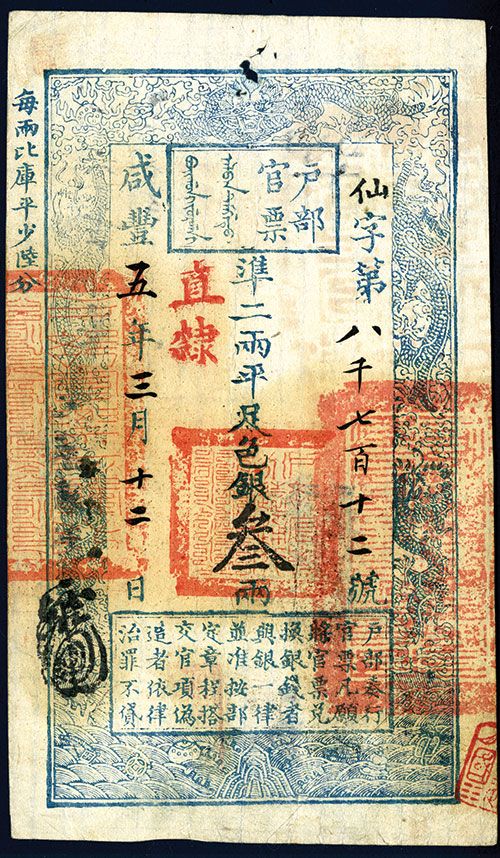 戶部
官票
仙字第八千七百十二號
準二兩平足色銀叁兩
直隸
咸豐五年三月十二日
每兩比庫平少陸分
戶部奏行
官票凡願
將官票兑
換銀錢者
與銀一律
並准按部
定章程搭
交官項偽
造者依律
治罪不貸